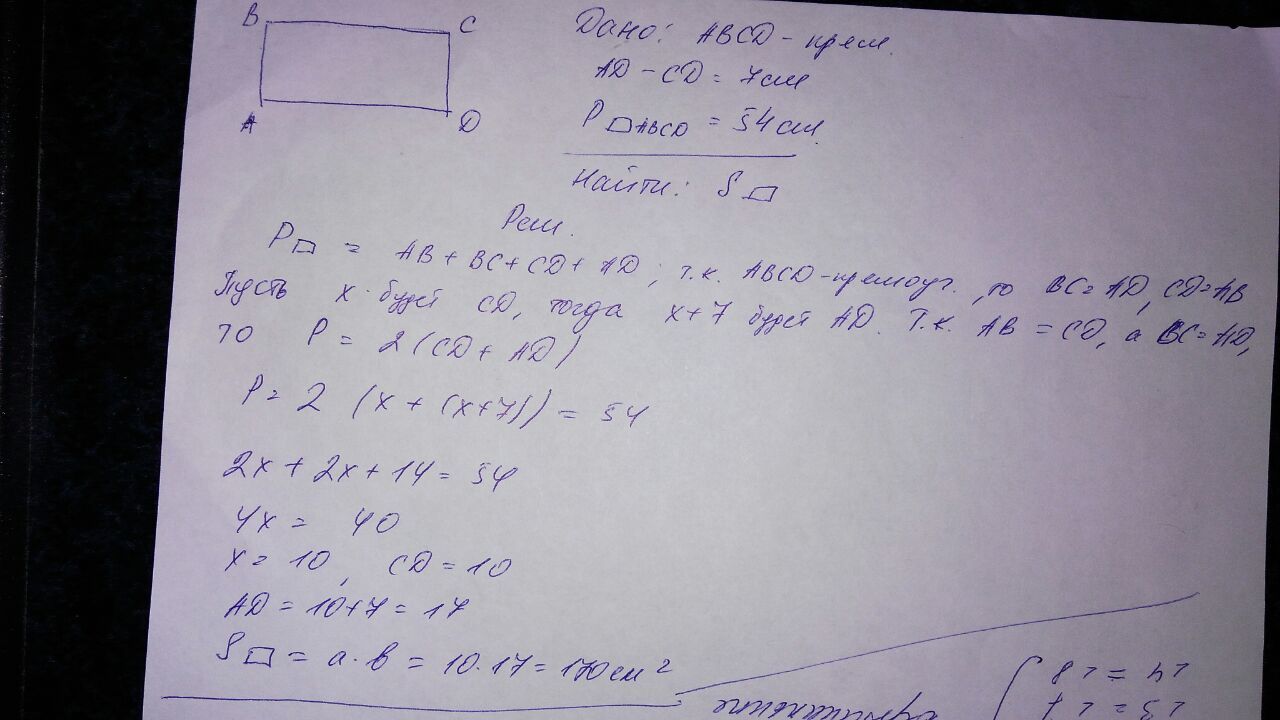 B C
A D
Дано: ABCD - прям.
AD - CD = 7см
P▱ABCD = 54см
Найти: S▱
Реш.
P▱ = AB + BC + CD + AD, т.к. ABCD-прямоуг., то BC = AD, CD = AB
Пусть x будет CD, тогда x+7 будет AD. Т.к. AB = CD, а BC = AD,
то P = 2(CD + AD)
P = 2 (x + (x+7)) = 54
2x + 2x + 14 = 54
4x = 40
x = 10, CD = 10
AD = 10+7 = 17
S▱ = a·b = 10·17 = 170см²
∠4 = ∠8
∠3 = ∠7